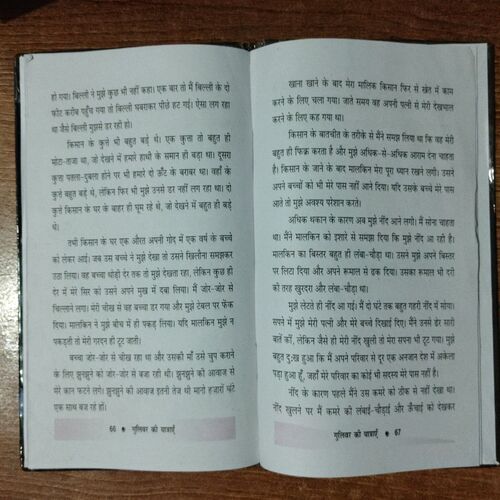 हो गया। बिल्ली ने मुझे कुछ भी नहीं कहा। एक बार तो मैं बिल्ली के दो
फीट करीब पहुँच गया तो बिल्ली घबराकर पीछे हट गई। ऐसा लग रहा
था जैसे बिल्ली मुझसे डर रही हो।
किसान के कुत्ते भी बहुत बड़े थे। एक कुत्ता तो बहुत ही
मोटा-ताजा था, जो देखने में हमारे हाथी के समान ही बड़ा था। दूसरा
कुत्ता पतला-दुबला होने पर भी हमारे दो ऊँट के बराबर था। वहाँ के
कुत्ते बहुत बड़े थे, लेकिन फिर भी मुझे उनसे डर नहीं लग रहा था। दो
कुत्ते किसान के घर के बाहर ही घूम रहे थे, जो देखने में बहुत ही बड़े
थे।
तभी किसान के घर एक औरत अपनी गोद में एक वर्ष के बच्चे
को लेकर आई। जब उस बच्चे ने मुझे देखा तो उसने खिलौना समझकर
उठा लिया। वह बच्चा थोड़ी देर तक तो मुझे देखता रहा, लेकिन कुछ ही
देर में मेरे सिर को उसने अपने मुख में दबा लिया। मैं जोर-जोर से
चिल्लाने लगा। मेरी चीख से वह बच्चा डर गया और मुझे टेबल पर फेंक
दिया। मालकिन ने मुझे बीच में ही पकड़ लिया। यदि मालकिन मुझे न
पकड़ती तो मेरी गरदन ही टूट जाती।
बच्चा जोर-जोर से चीख रहा था और उसकी माँ उसे चुप कराने
के लिए झुनझुने को जोर-जोर से बजा रही थी। झुनझुने की आवाज से
मेरे कान फटने लगे। झुनझुने की आवाज इतनी तेज थी मानो हजारों घंटे
एक साथ बज रहे हों।
66 ● गुलिवर की यात्राएँ
खाना खाने के बाद मेरा मालिक किसान फिर से खेत में काम
करने के लिए चला गया। जाते समय वह अपनी पत्नी से मेरी देखभाल
करने के लिए कह गया था।
किसान के बातचीत के तरीके से मैंने समझ लिया था कि वह मेरी
बहुत ही फिक्र करता है और मुझे अधिक-से-अधिक आराम देना चाहता
है। किसान के जाने के बाद मालकिन मेरा पूरा ध्यान रखने लगी। उसने
अपने बच्चों को भी मेरे पास नहीं आने दिया। यदि उसके बच्चे मेरे पास
आते तो मुझे अवश्य परेशान करते।
अधिक थकान के कारण अब मुझे नींद आने लगी। मैं सोना चाहता
था। मैंने मालकिन को इशारे से समझा दिया कि मुझे नींद आ रही है।
मालकिन का बिस्तर बहुत ही लंबा-चौड़ा था। उसने मुझे अपने बिस्तर
पर लिटा दिया और अपने रूमाल से ढक दिया। उसका रूमाल भी दरी
की तरह खुरदरा और लंबा-चौड़ा था।
मुझे लेटते ही नींद आ गई। मैं दो घंटे तक बहुत गहरी नींद में सोया।
सपने में मुझे मेरी पत्नी और मेरे बच्चे दिखाई दिए। मैंने उनसे ढेर सारी
बातें कीं, लेकिन जैसे ही मेरी नींद खुली तो मेरा सपना भी टूट गया। मुझे
बहुत दुःख हुआ कि मैं अपने परिवार से दूर एक अनजान देश में अकेला
पड़ा हुआ हूँ, जहाँ मेरे परिवार का कोई भी सदस्य मेरे पास नहीं है।
नींद के कारण पहले मैंने उस कमरे को ठीक से नहीं देखा था।
नींद खुलने पर मैं कमरे की लंबाई-चौड़ाई और ऊँचाई को देखकर
गुलिवर की यात्राएँ ● 67